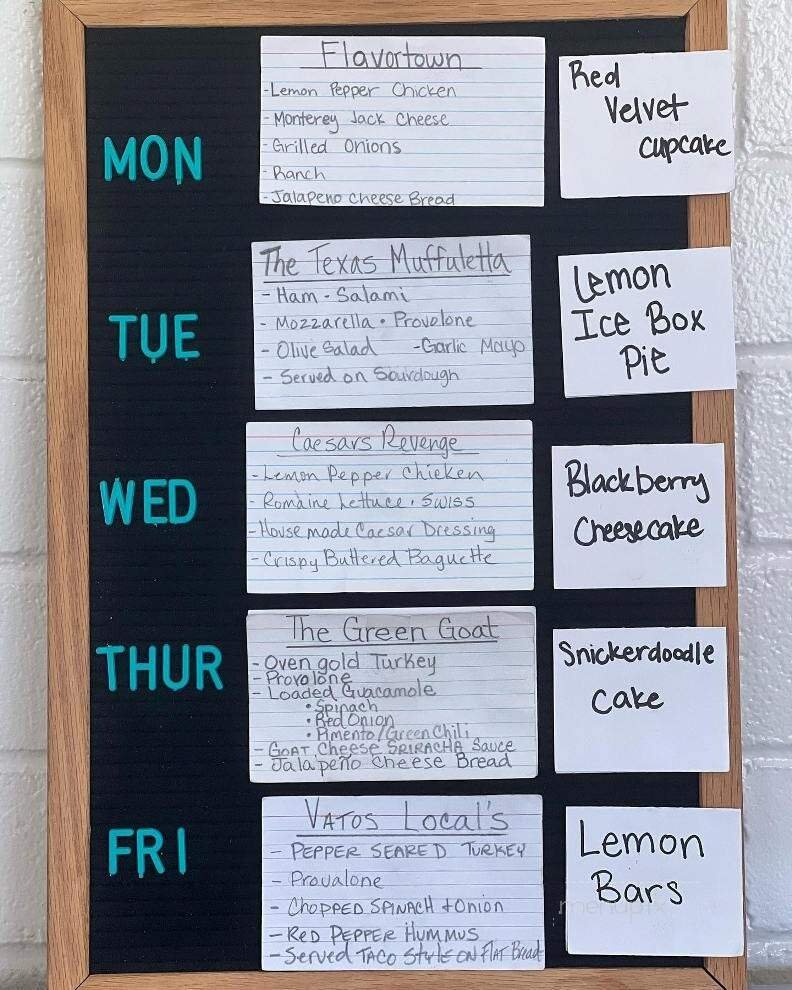 MON
Flavortown
- Lemon Pepper Chicken
- Monterey Jack Cheese
- Grilled Onions
- Ranch
- Jalapeno cheese Bread
Red
Velvet
cupcake
TUE
The Texas Muffuletta
- Ham - Salami
- Mozzarella • Provolone
- Olive Salad - Garlic Mayo
- Served on Sourdough
Lemon
Ice Box
Pie
WED
Caesars Revenge
- Lemon Pepper Chicken
- Romaine Lettuce • Swiss
- House made Caesar Dressing
- Crispy Buttered Baguette
Blackberry
Cheesecake
THUR
The Green Goat
- Oven gold Turkey
- Provolone
- Loaded Guacamole
• Spinach
• Red Onion
• Pimento/Green Chili
- GOAT Cheese SRIRACHA Sauce
- Jalapeño Cheese Bread
Snickerdoodle
Cake
FRI
VATOS Local's
- PEPPER SEARED TURKEY
- Provalone
- CHOPPED SPINACH + Onion
- RED PEPPER HUMMUS
- Served TACO Style ON FLAT Bread
Lemon
Bars